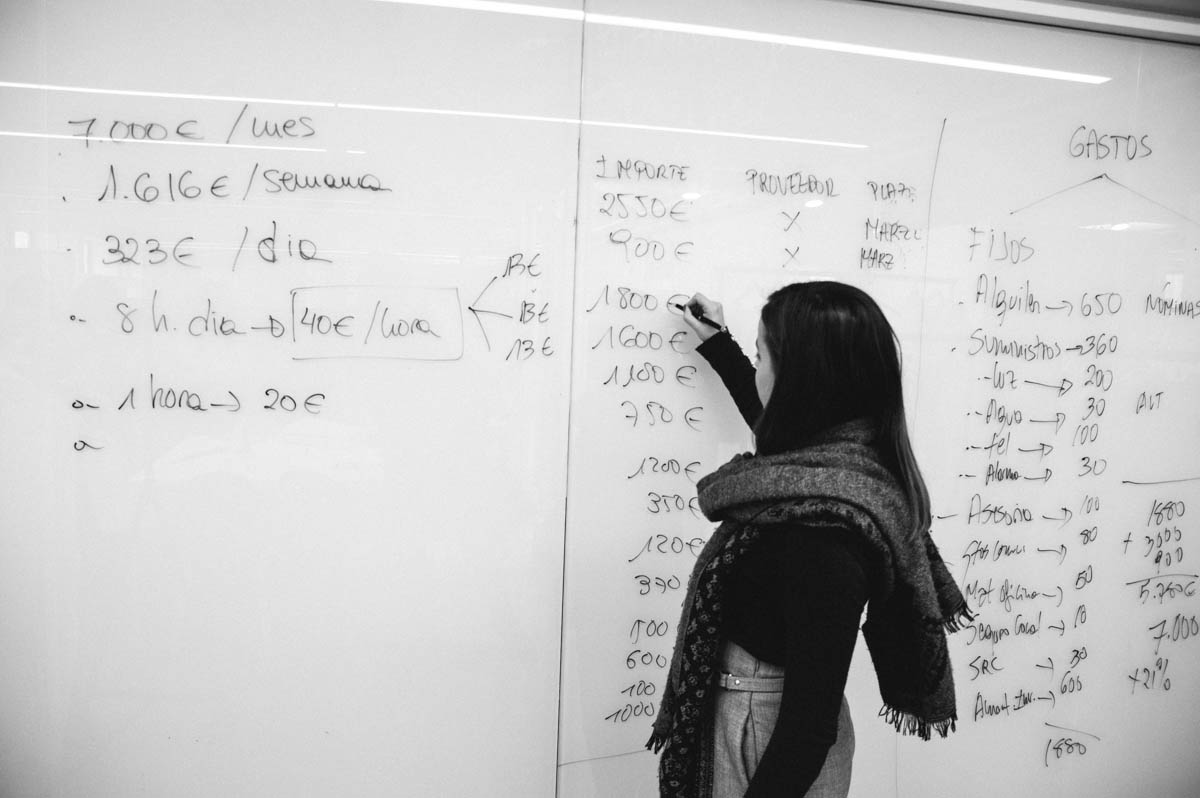 7.000€ /mes
1.616€/semana
323€ /dia
8 h. dia → 40€/hora
13€
13€
13€
1 hora → 20€
IMPORTE PROVEEDOR
2550€ X MARZO
900€ X MARZ
1800€
1600€
1100€
750€
1200€
350€
120€
390
100
600
100
1000
GASTOS
FIJOS
Alquiler → 650
Suministros → 360
- Luz → 200
- Agua → 30
- Tel → 100
- Alarma → 30
Asesoria → 100
→ 80
Mat oficina →) 50
→ 10
SRC → 30
Amort. Inv. → 600
1880
NÓMINAS
1880
+ 3000
900
5.780€
7.000
+21%